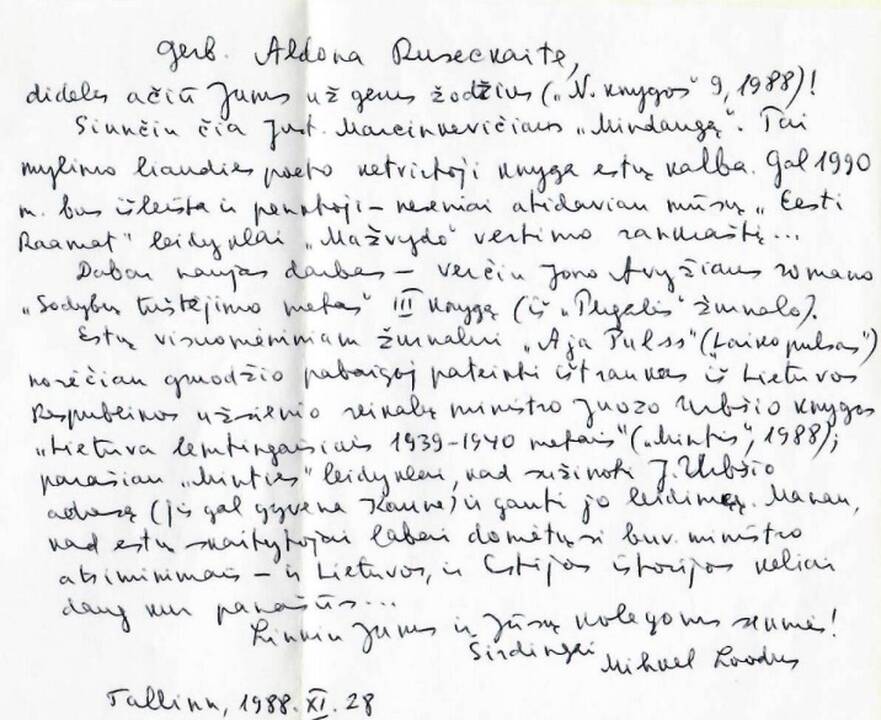 Gerb. Aldona Ruseckaite,
dideles ačiū Jums už gerus žodžius („N. knygos“ 9, 1988)!
Siunčiu čia Just. Marcinkevičiaus „Mindaugą“. Tai
mylimo liaudies poeto ketvirtoji knyga estų kalba. Gal 1990
m. bus išleista ir penktoji – neseniai atidaviau mūsų „Eesti
Raamat“ leidyklai „Mažvydo“ vertimo rankraštį...
Dabar naujas darbas – verčiu Jono Avyžiaus romano
„Sodybų tuštėjimo metas“ III knygą (iš „Pergalės“ žurnalo).
Estų visuomeniniam žurnalui „Aja Pulss“ („Laiko pulsas“)
norėčiau gruodžio pabaigoj pateikti ištraukas iš Lietuvos
Respublikos užsienio reikalų ministro Juozo Urbšio knygos
„Lietuva lemtingaisiais 1939–1940 metais“ („Mintis“, 1988);
parašiau „Minties“ leidyklai, kad sužinoti J. Urbšio
adresą (jis gal gyvena Kaune) ir gauti jo leidimą. Manau,
kad estų skaitytojai labai domėtųsi buv. ministro
atsiminimais – ir Lietuvos, ir Estijos istorijos keliai
daug kur panašūs...
Linkiu Jums ir Jūsų kolegoms sėkmės!
Širdingai
Mihkel Loodus
Tallinn, 1988. XI. 28